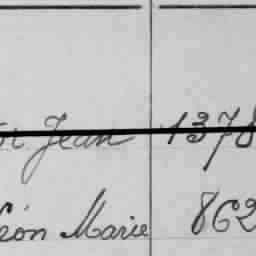 Jean 1378
Marie 862